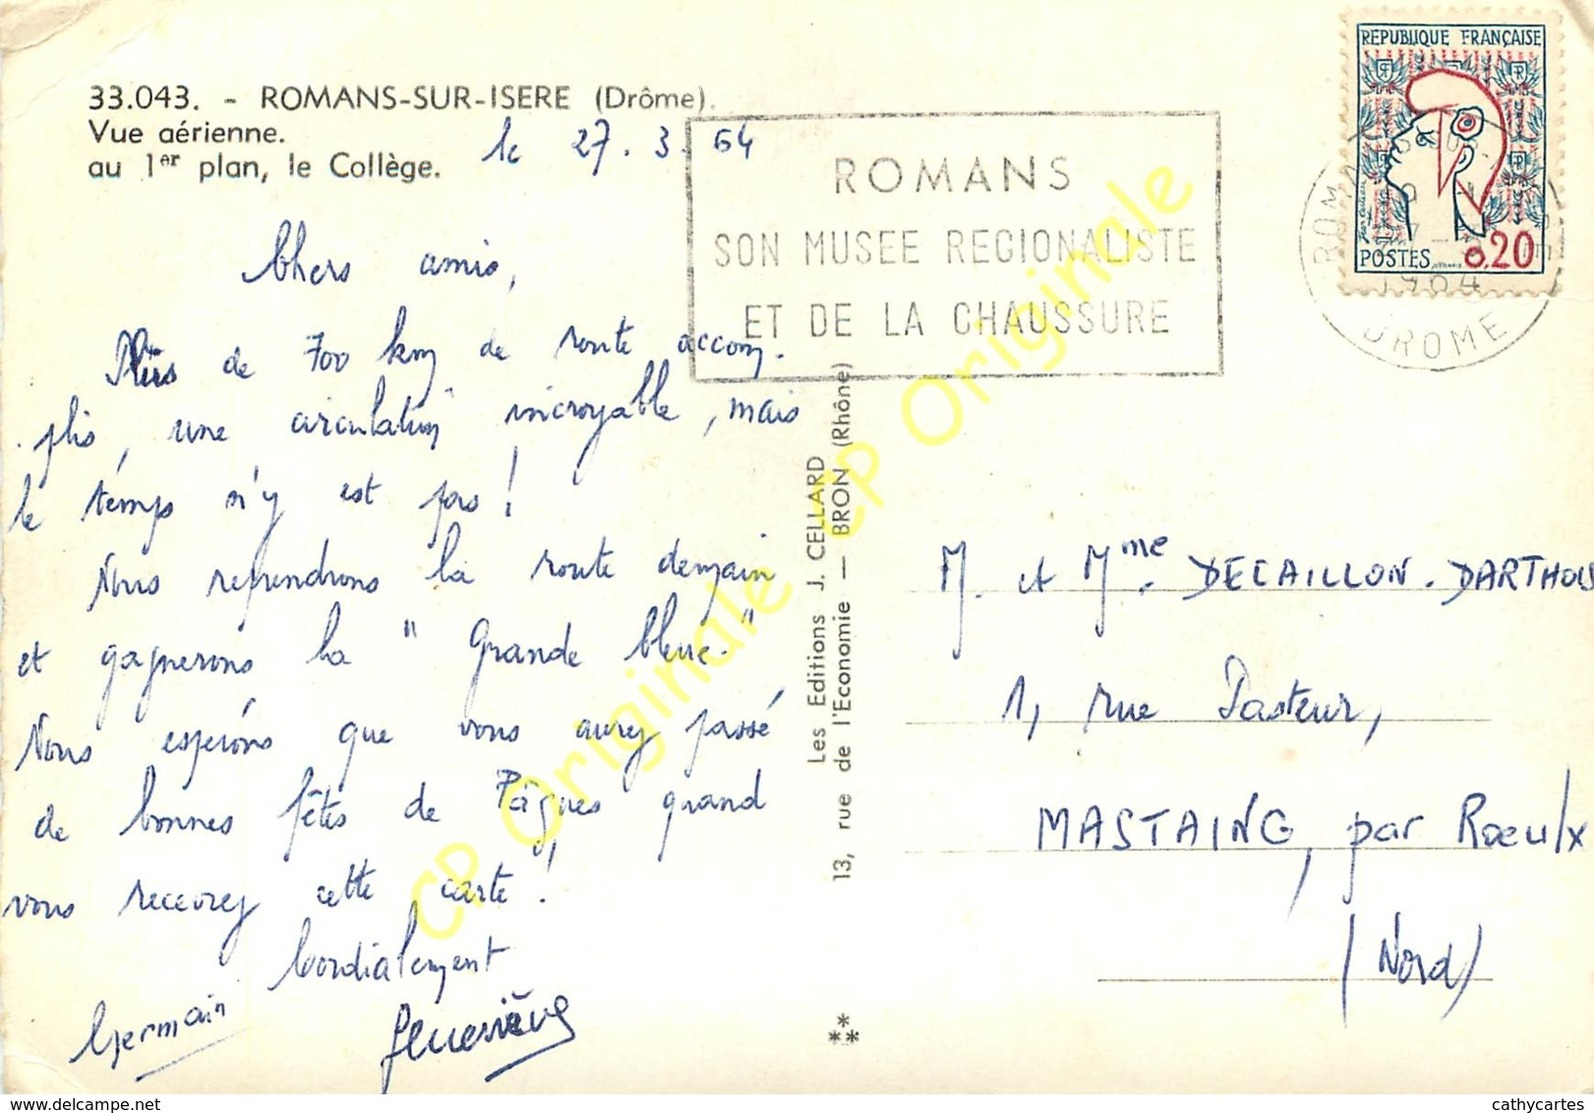 33.043. - ROMANS-SUR-ISERE (Drôme).
Vue aérienne.
au 1er plan, le Collège.
le 27.3.64
Chers amis,
Plus de 700 km de route accom-
plis, une circulation incroyable, mais
le temps n'y est pas!
Nous reprendrons la route demain
et gagnerons la "Grande bleue."
Nous espérons que vous aurez passé
de bonnes fêtes de Pâques quand
vous recevrez cette carte!
Cordialement
Germain
Geneviève
Les Editions J. CELLARD
13, rue de l'Economie — BRON (Rhône)
ROMANS
SON MUSEE REGIONALISTE
ET DE LA CHAUSSURE
REPUBLIQUE FRANÇAISE
POSTES
0,20
ROMANS
1964
DROME
M. et Mme. DECAILLON-DARTHOIS
1, rue Pasteur,
MASTAING, par Roeulx
(Nord)
CP Originale CP Originale
http://www.delcampe.net
cathycartes